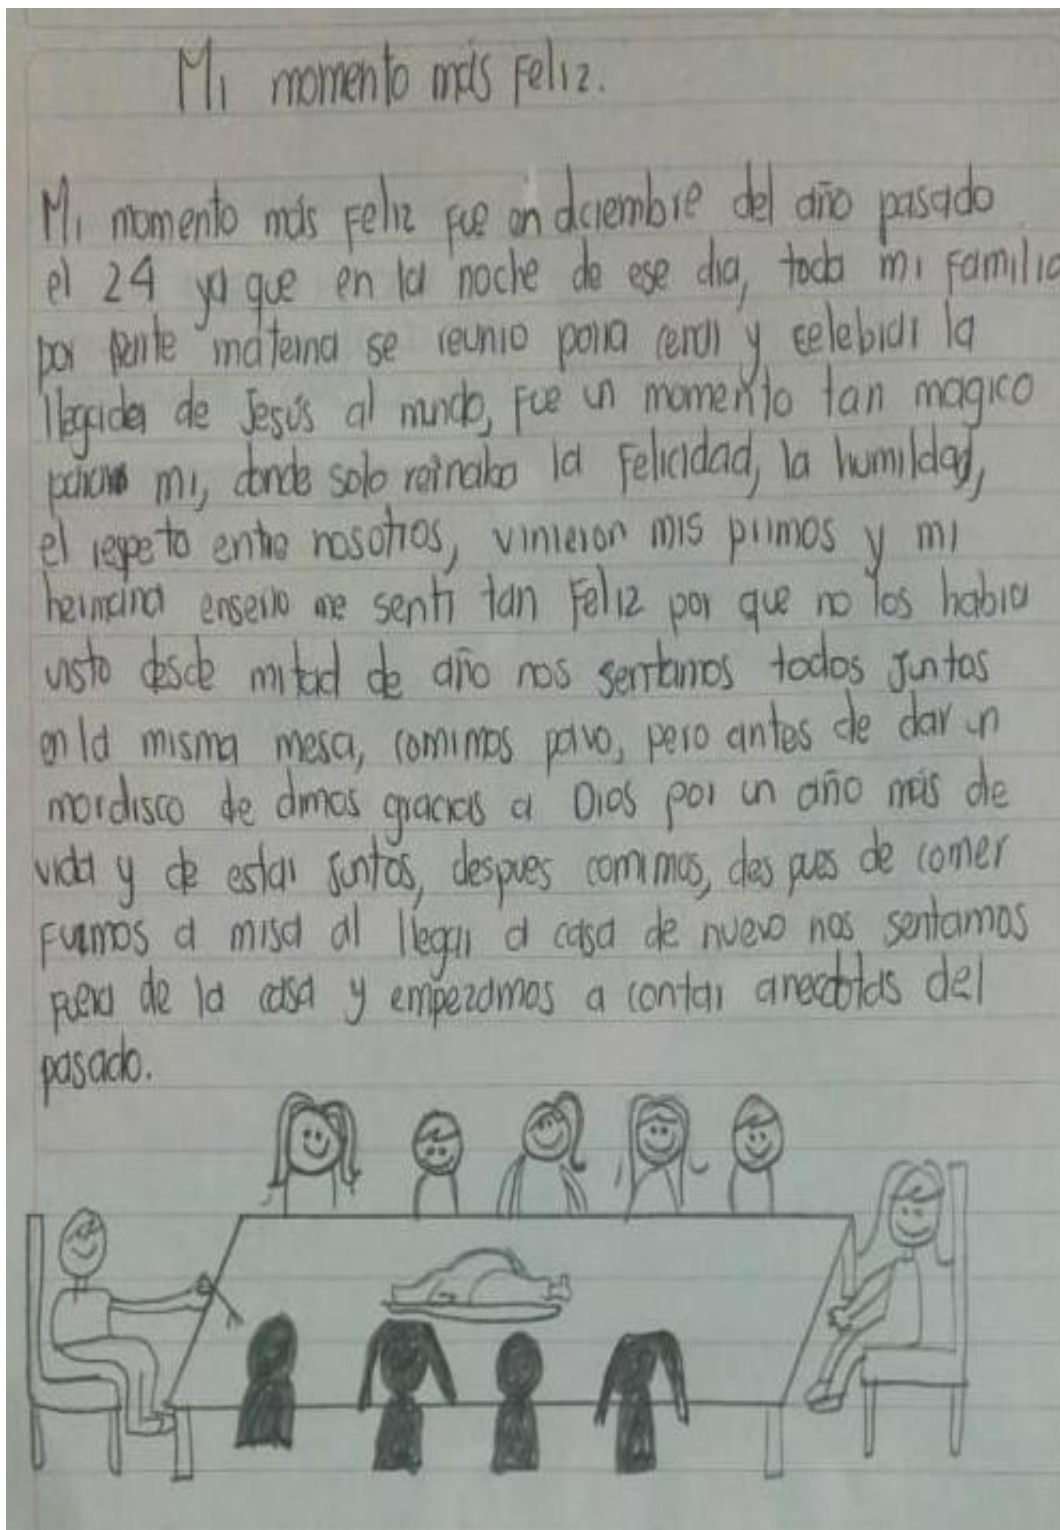 Mi momento más Feliz.
Mi momento más Feliz Fue en diciembre del año pasado
el 24 ya que en la noche de ese dia, toda mi Familia
por parte materna se reunio para cenar y celebrar la
llegada de Jesús al mundo, Fue un momento tan magico
para mi, donde solo reinaba la Felicidad, la humildad,
el respeto entre nosotros, vinieron mis primos y mi
hermana enserio me senti tan Feliz por que no los habia
visto desde mitad de año nos sentamos todos juntos
en la misma mesa, comimos pavo, pero antes de dar un
mordisco de dimos gracias a Dios por un año más de
vida y de estar juntos, despues comimos, des pues de comer
Fuimos a misa al llegar a casa de nuevo nos sentamos
Fuera de la casa y empezamos a contar anecdotas del
pasado.